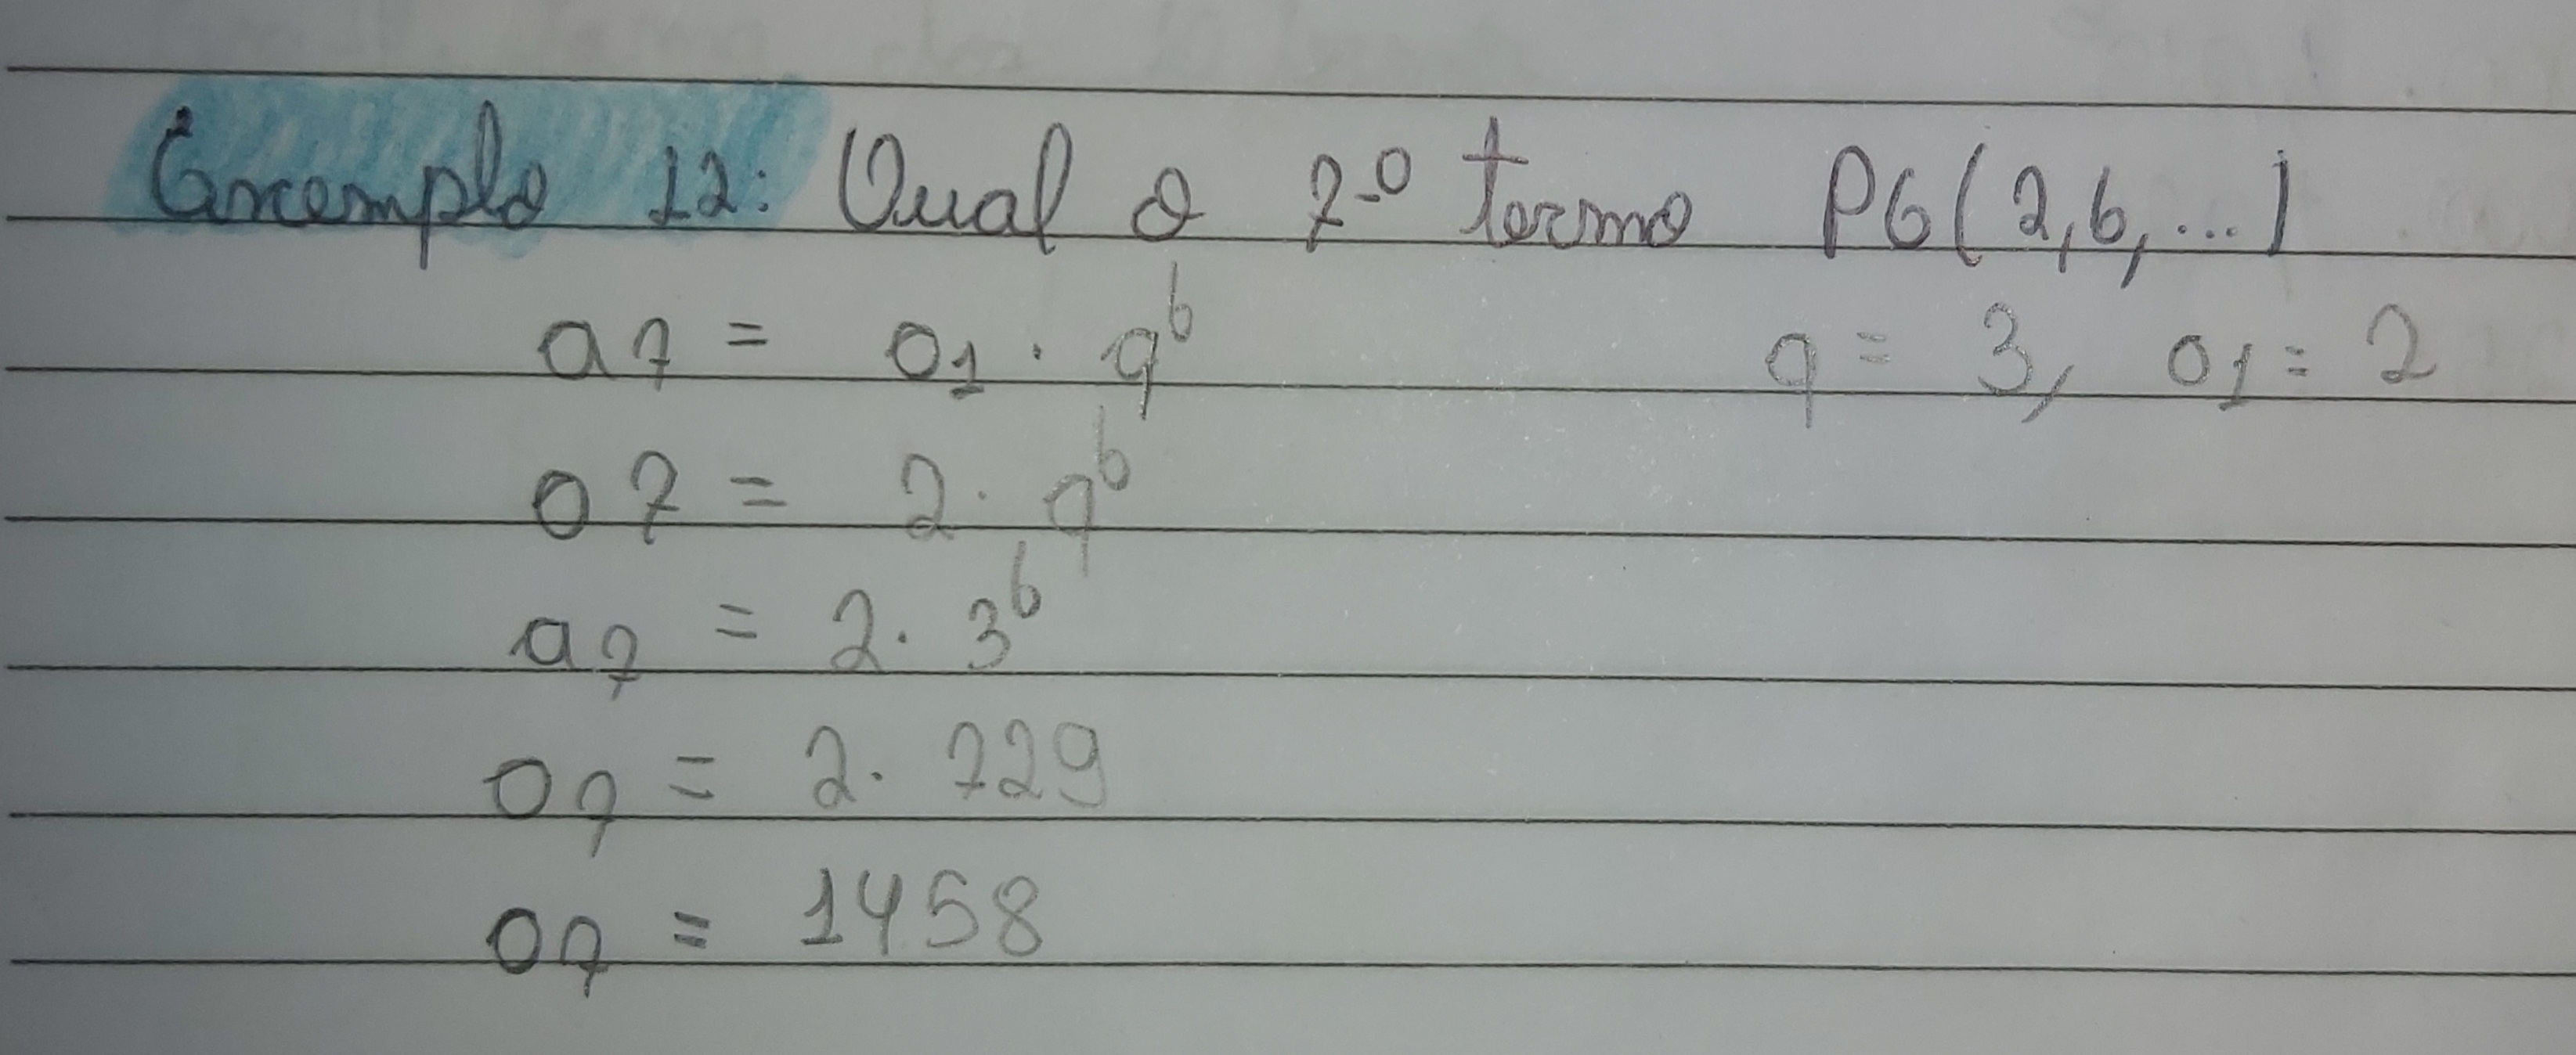 Exemplo 12: Qual o 7º termo PG(2,6,...)
a7 = a1 · q^6 q = 3, a1 = 2
a7 = 2 · q^6
a7 = 2 · 3^6
a7 = 2 · 729
a7 = 1458